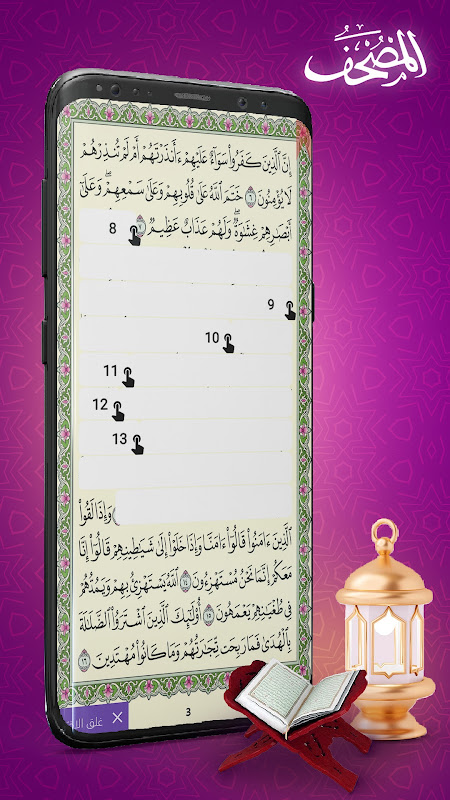 المصحف
إِنَّ ٱلَّذِينَ كَفَرُوا۟ سَوَآءٌ عَلَيْهِمْ ءَأَنذَرْتَهُمْ أَمْ لَمْ تُنذِرْهُمْ
لَا يُؤْمِنُونَ ٦ خَتَمَ ٱللَّهُ عَلَىٰ قُلُوبِهِمْ وَعَلَىٰ سَمْعِهِمْ ۖ وَعَلَىٰٓ
أَبْصَٰرِهِمْ غِشَٰوَةٌ ۖ وَلَهُمْ عَذَابٌ عَظِيمٌ
8
9
10
11
12
13
وَإِذَا لَقُوا۟
ٱلَّذِينَ ءَامَنُوا۟ قَالُوٓا۟ ءَامَنَّا وَإِذَا خَلَوْا۟ إِلَىٰ شَيَٰطِينِهِمْ قَالُوٓا۟ إِنَّا
مَعَكُمْ إِنَّمَا نَحْنُ مُسْتَهْزِءُونَ ١٤ ٱللَّهُ يَسْتَهْزِئُ بِهِمْ وَيَمُدُّهُمْ
فِى طُغْيَٰنِهِمْ يَعْمَهُونَ ١٥ أُو۟لَٰٓئِكَ ٱلَّذِينَ ٱشْتَرَوُا۟ ٱلضَّلَٰلَةَ
بِٱلْهُدَىٰ فَمَا رَبِحَت تِّجَٰرَتُهُمْ وَمَا كَانُوا۟ مُهْتَدِينَ ١٦
غلق
3